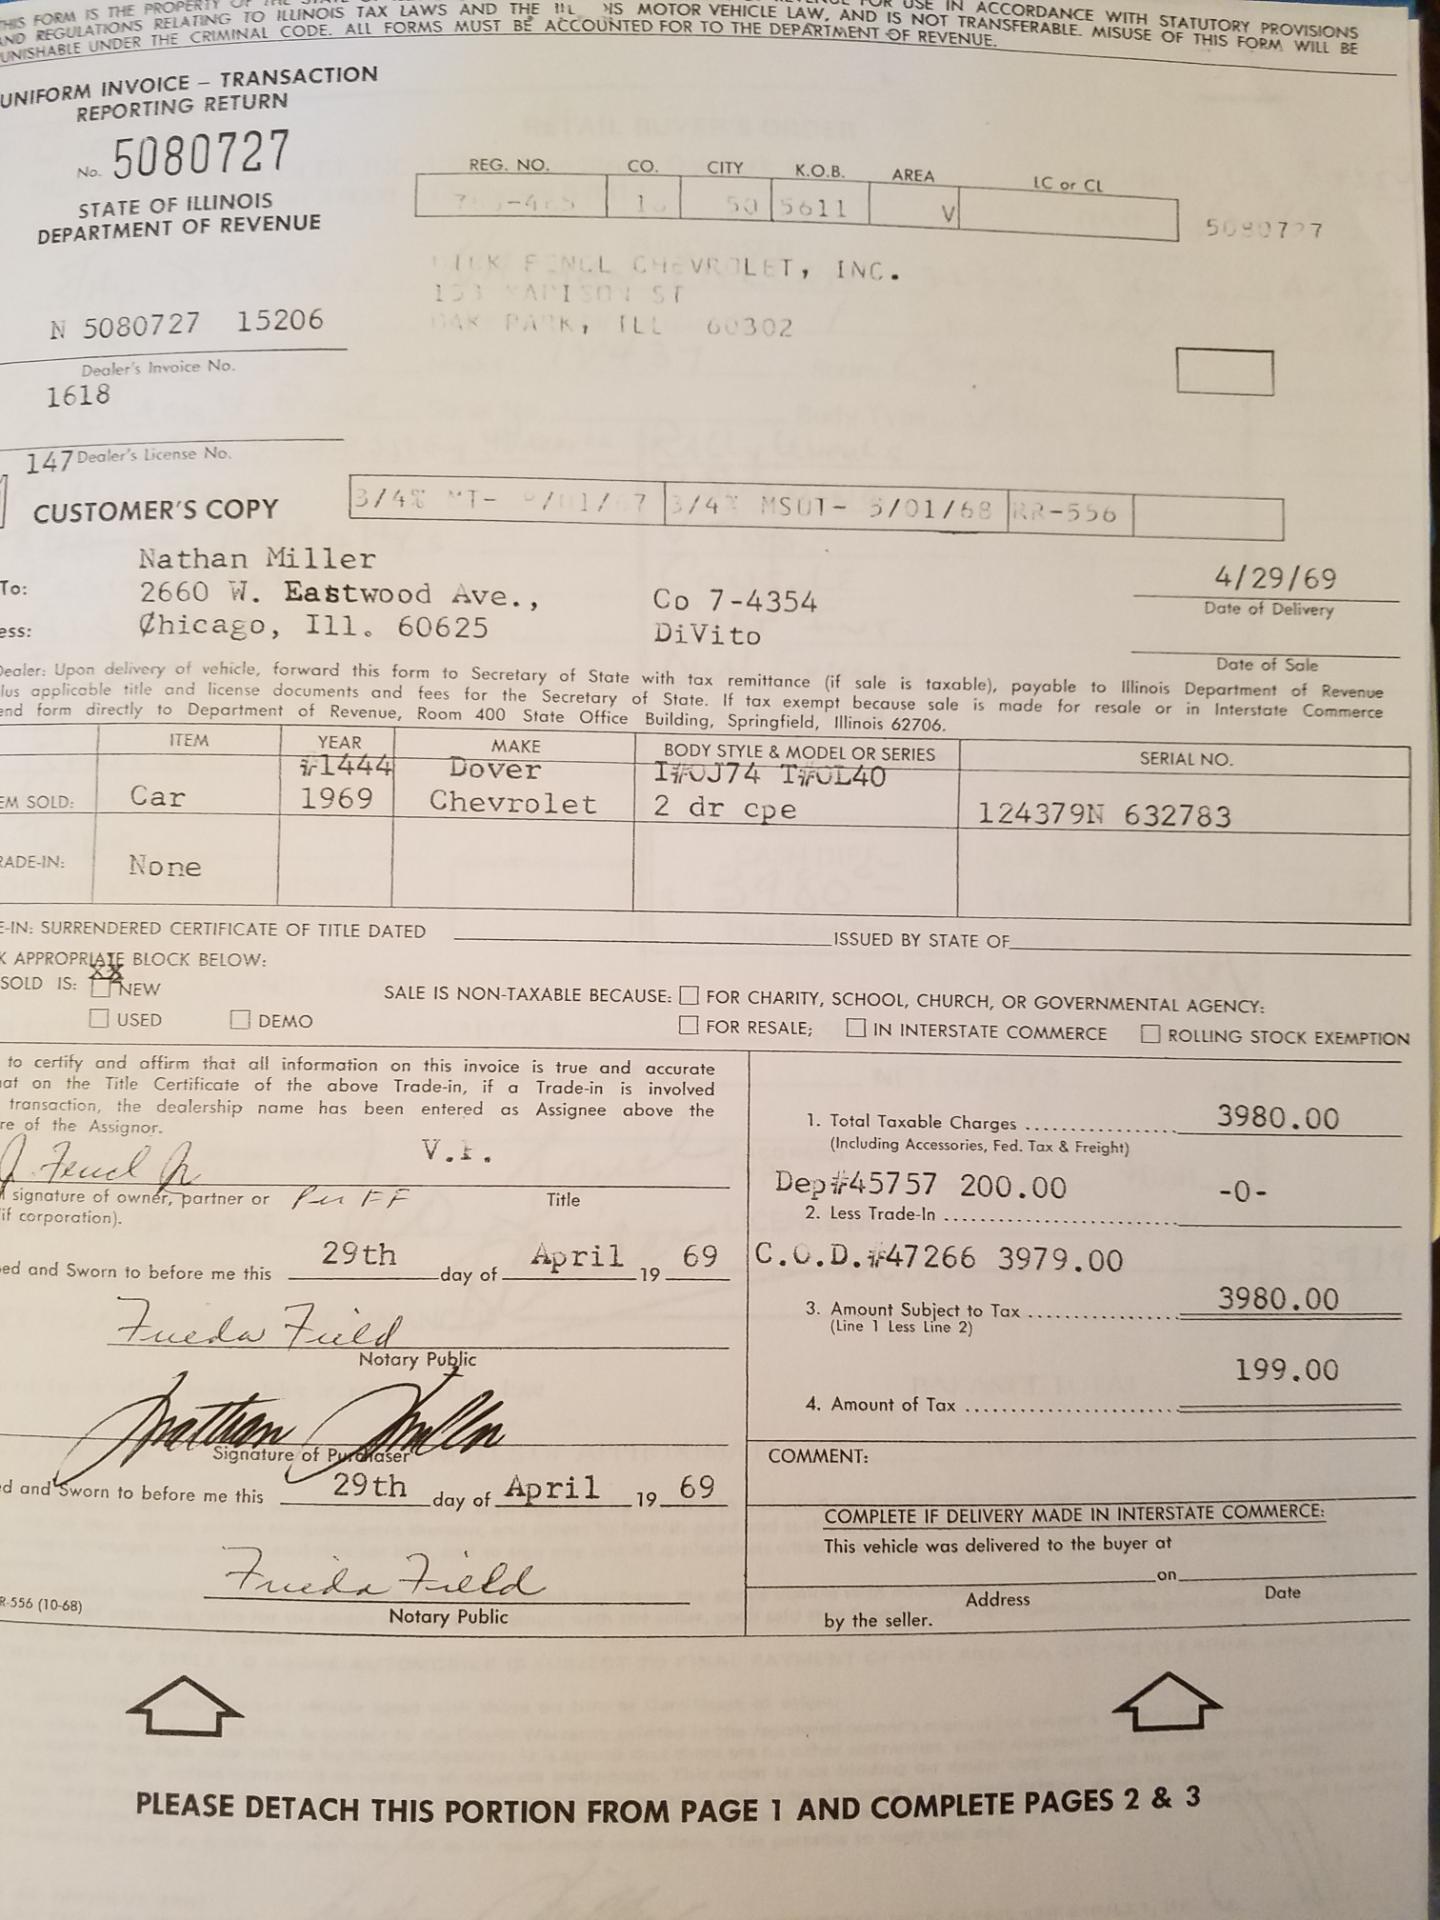 THIS FORM IS THE PROPERTY OF THE STATE OF USE IN ACCORDANCE WITH STATUTORY PROVISIONS
AND REGULATIONS RELATING TO ILLINOIS TAX LAWS AND THE ILL NS MOTOR VEHICLE LAW, AND IS NOT TRANSFERABLE. MISUSE OF THIS FORM WILL BE
PUNISHABLE UNDER THE CRIMINAL CODE. ALL FORMS MUST BE ACCOUNTED FOR TO THE DEPARTMENT OF REVENUE.
UNIFORM INVOICE – TRANSACTION
REPORTING RETURN
No. 5080727
STATE OF ILLINOIS
DEPARTMENT OF REVENUE
REG. NO. CO. CITY K.O.B. AREA LC or CL
50 5611 V
5080727
CHEVROLET, INC.
MADISON ST
OAK PARK, ILL 60302
N 5080727 15206
Dealer's Invoice No.
1618
147 Dealer's License No.
CUSTOMER'S COPY
3/4% MT- /01/67 3/4% MSOT- 5/01/68 RR-556
Nathan Miller
To: 2660 W. Eastwood Ave., Co 7-4354
ess: Chicago, Ill. 60625 DiVito
4/29/69
Date of Delivery
Date of Sale
Dealer: Upon delivery of vehicle, forward this form to Secretary of State with tax remittance (if sale is taxable), payable to Illinois Department of Revenue
lus applicable title and license documents and fees for the Secretary of State. If tax exempt because sale is made for resale or in Interstate Commerce
end form directly to Department of Revenue, Room 400 State Office Building, Springfield, Illinois 62706.
ITEM YEAR MAKE BODY STYLE & MODEL OR SERIES SERIAL NO.
#1444 Dover I#OJ74 T#OL40
EM SOLD: Car 1969 Chevrolet 2 dr cpe 124379N 632783
RADE-IN: None
E-IN: SURRENDERED CERTIFICATE OF TITLE DATED ISSUED BY STATE OF
K APPROPRIATE BLOCK BELOW:
XX
SOLD IS: NEW SALE IS NON-TAXABLE BECAUSE: FOR CHARITY, SCHOOL, CHURCH, OR GOVERNMENTAL AGENCY:
USED DEMO FOR RESALE; IN INTERSTATE COMMERCE ROLLING STOCK EXEMPTION
to certify and affirm that all information on this invoice is true and accurate
at on the Title Certificate of the above Trade-in, if a Trade-in is involved
transaction, the dealership name has been entered as Assignee above the
re of the Assignor.
Fencl Jr V.P.
signature of owner, partner or Per FF Title
if corporation).
ed and Sworn to before me this 29th day of April 19 69
Frieda Field
Notary Public
Nathan Miller
Signature of Purchaser
d and Sworn to before me this 29th day of April 19 69
Frieda Field
R-556 (10-68) Notary Public
1. Total Taxable Charges 3980.00
(Including Accessories, Fed. Tax & Freight)
Dep#45757 200.00 -0-
2. Less Trade-In
C.O.D.#47266 3979.00
3. Amount Subject to Tax 3980.00
(Line 1 Less Line 2)
199.00
4. Amount of Tax
COMMENT:
COMPLETE IF DELIVERY MADE IN INTERSTATE COMMERCE:
This vehicle was delivered to the buyer at
on
Address Date
by the seller.
PLEASE DETACH THIS PORTION FROM PAGE 1 AND COMPLETE PAGES 2 & 3